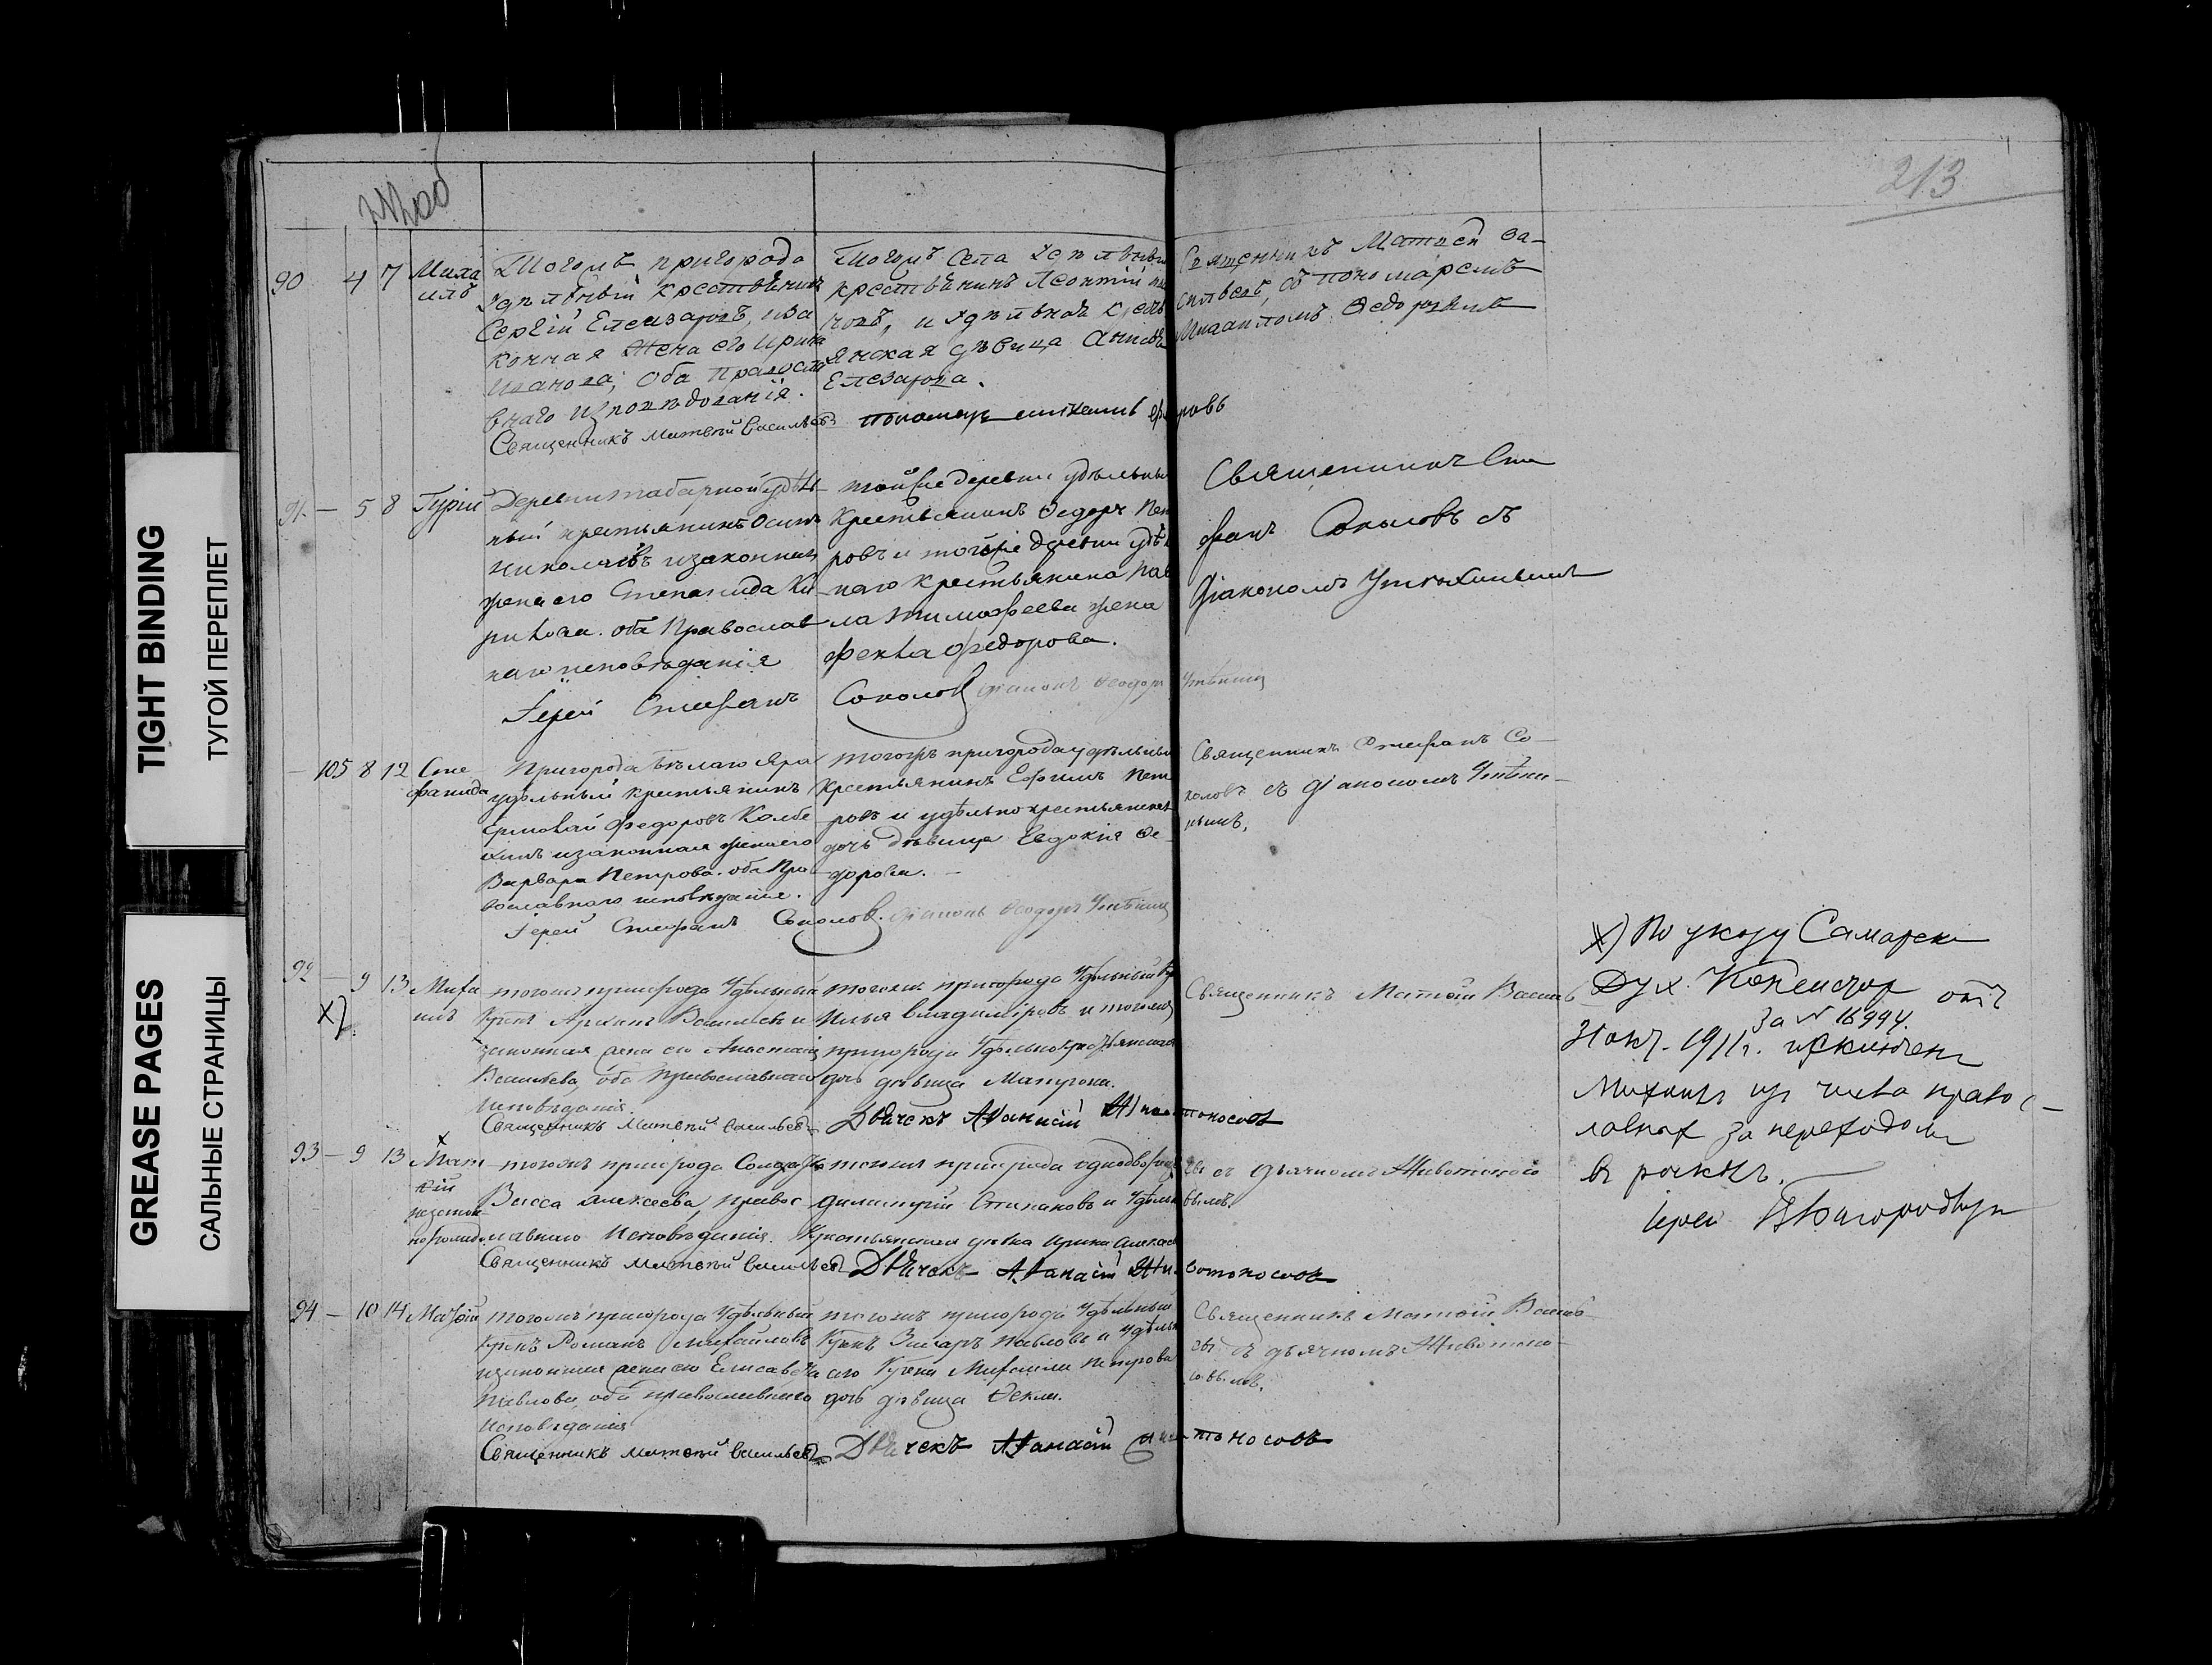 TIGHT BINDING
ТУГОЙ ПЕРЕПЛЕТ
GREASE PAGES
САЛЬНЫЕ СТРАНИЦЫ
213
90 4 7 Миха
илъ
Тогожъ пригорода
Удѣльный крестьянинъ
Сергій Елеазаровъ, иза
конная жена его Ирина
Иванова; Оба Православ
внаго Исповѣдованія.
Священникъ Матвѣй Васильевъ
Тогожъ Села Удѣльный
крестьянинъ Леонтій
и Удѣльная крестъ
янская дѣвица Анисья
Елезарова.
пономарь Михаилъ Федоровъ
Священникъ Матвей Ва-
сильевъ, съ пономаремъ
Михаиломъ Федоровымъ
91. — 5 8 Гурій
Деревни Табарной удѣль-
ный крестьянинъ Осипъ
Николаевъ изаконная
жена его Степанида Ки
рилова. оба Православ
наго исповѣданія
Іерей Стефанъ Соколовъ діаконъ Феодоръ Утѣхинъ
тойже деревни удѣльный
Крестьянинъ Федоръ Пет
ровъ и тойже деревни удѣль
наго крестьянина Пав
ла Тимофеева жена
Фекла Федорова.
Священникъ Сте
фанъ Соколовъ съ
діакономъ Утѣхинымъ
— 105 8 12 Сте
фанида
Пригорода Бѣлаго Яра
удѣльный крестьянинъ
Ермолай Федоровъ Колбе
кинъ изаконная жена его
Варвара Петрова. оба Пра
вославнаго исповѣданія.
Іерей Стефанъ Соколовъ. діаконъ Феодоръ Утѣхинъ
тогожъ пригорода удѣльный
Крестьянинъ Ефимъ Пет
ровъ и удѣльнокрестьянская
дочь дѣвица Евдокія Фе-
дорова. —
Священникъ Стефанъ Со-
коловъ съ діакономъ Утѣхи-
нымъ.
92 — 9 13 Миха
илъ
х)
тогожъ пригорода Удѣльный
Крнъ Архипъ Васильевъ и
законная жена его Анастасія
Васильева, оба православнаго
Исповѣданія.
Священникъ Матвѣй Васильевъ
тогожъ пригорода Удѣльный Кр
Илья Владиміровъ и тогожъ
пригорода Удѣльнокрестьянская
дочь дѣвица Матрона.
Дьячекъ Аѳанасій Животоносовъ
Священникъ Матвѣй Васильев
х) По указу Самарск
Дух. Консистор отъ
За № 16994.
31 окт. 1911 г. исключенъ
Михаилъ из числа правос-
лавных за переходом
в раскол.
Іерей
93 — 9 13 Мат
вій
незакон
норожд.
тогожъ пригорода Солдатка
Васса Алексеева, правос
лавнаго Исповѣданія.
Священникъ Матвѣй Васильевъ
тогожъ пригорода однодворецъ
Димитрій Степановъ и Удѣльн
Крестьянская дѣвка Ирина Алекс
Дьячекъ Аѳанасій Животоносовъ
въ съ дьячкомъ Животоносо
вымъ.
94 — 10 14 Матвій
тогожъ пригорода Удѣльный
Крнъ Романъ Михайловъ
изаконная жена его Елисавета
Павлова, оба православнаго
Исповѣданія
Священникъ Матвѣй Васильевъ
тогожъ пригорода Удѣльный
Крнъ Захаръ Павловъ и Удѣльн
аго Крна Михаила Петрова
дочь дѣвица Фекла.
Дьячекъ Аѳанасій Животоносовъ
Священникъ Матвѣй Василь
евъ съ дьячкомъ Животоно-
совымъ.